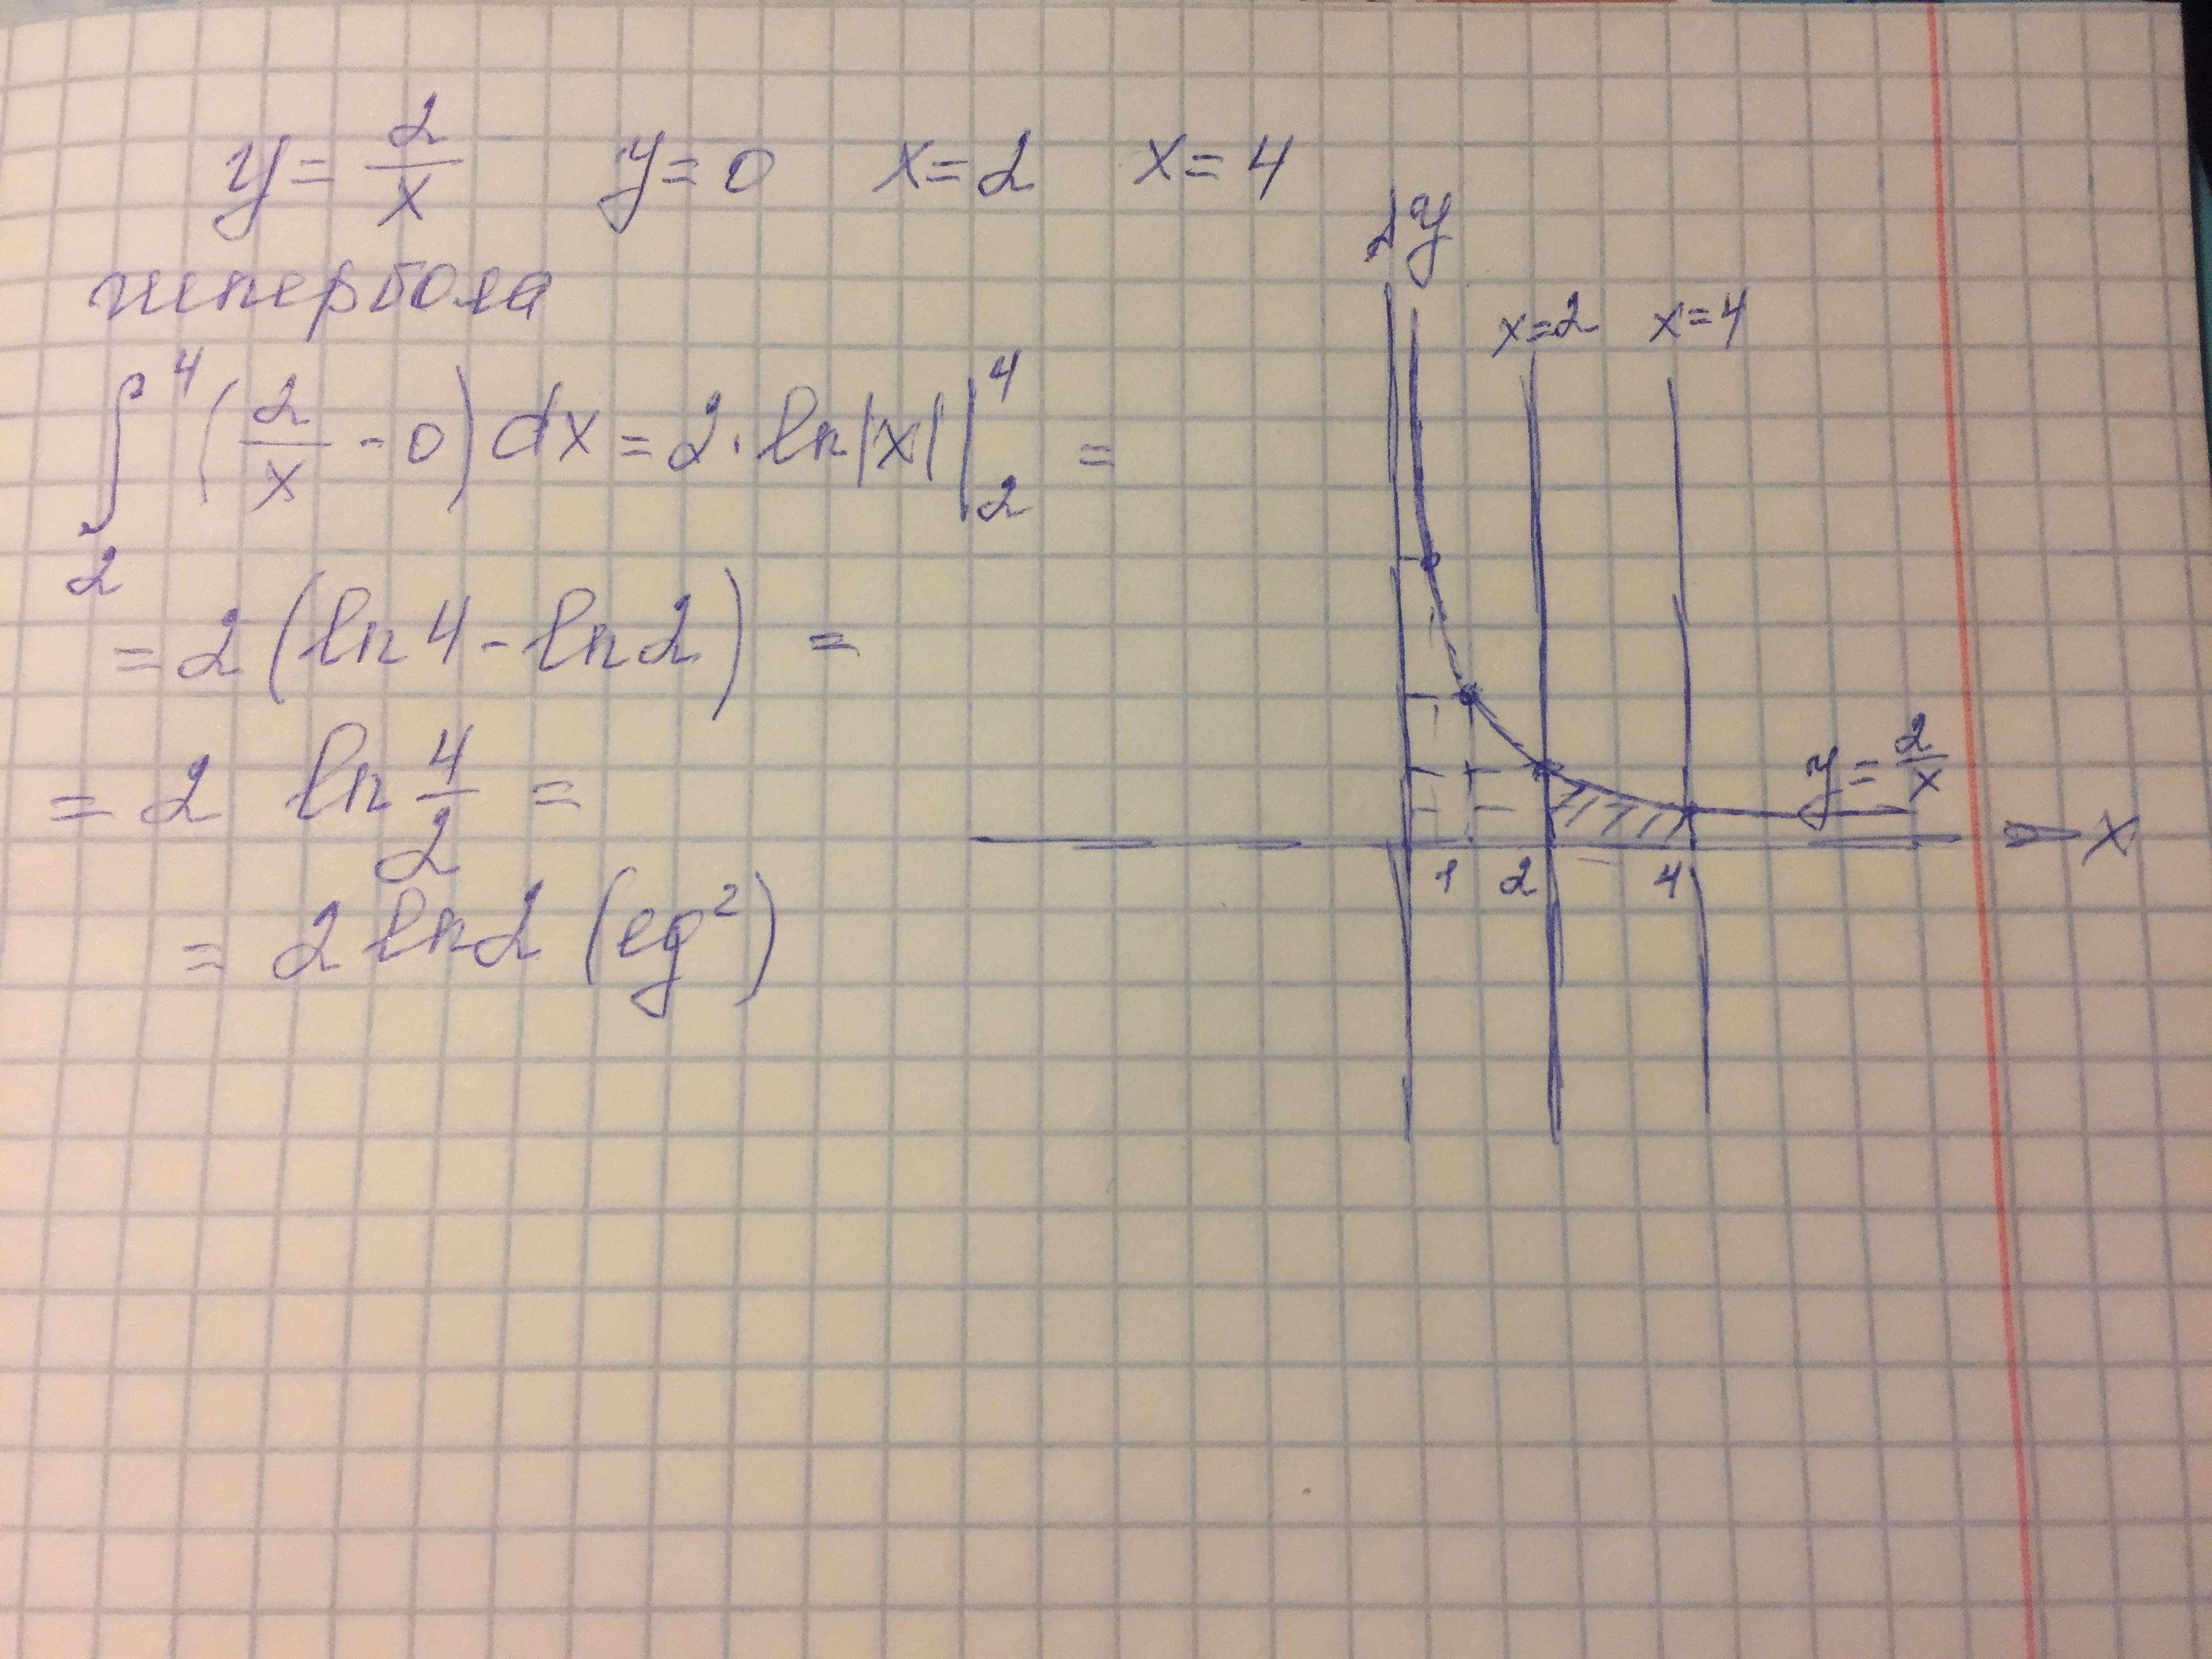 y = 2/x   y = 0   x = 2   x = 4
гипербола
∫₂⁴ (2/x - 0) dx = 2 · ln|x| |₂⁴ =
= 2 (ln 4 - ln 2) =
= 2 ln 4/2 =
= 2 ln 2 (eg²)
y
x=2   x=4
y = 2/x
x
1   2   4